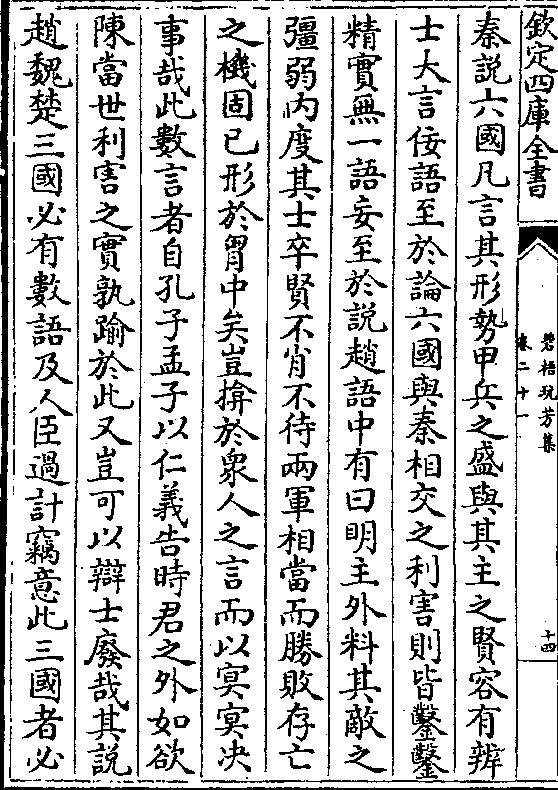 欽定四庫全書
碧梧玩芳集
卷二十一
十四
秦説六國凡言其形勢甲兵之盛與其主之賢容有辨
士大言佞語至於論六國與秦相交之利害則皆鑿鑿
精實無一語妄至於説趙語中有曰明主外料其敵之
彊弱内度其士卒賢不肖不待兩軍相當而勝敗存亡
之機固已形於胷中矣豈揜於衆人之言而以冥冥决
事哉此數言者自孔子孟子以仁義告時君之外如欲
陳當世利害之實孰踰於此又豈可以辯士廢哉其説
趙魏楚三國必有數語及人臣過計竊意此三國者必